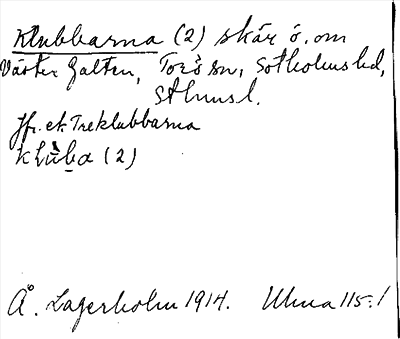 Klubbarna (2) skär ö. om
Väster Galten, Torö sn, Sotholms hd,
Sthmsl.
Jfr. ek. Treklubbarna
klùba (2)
Å. Lagerholm 1914. Uluna 115:1